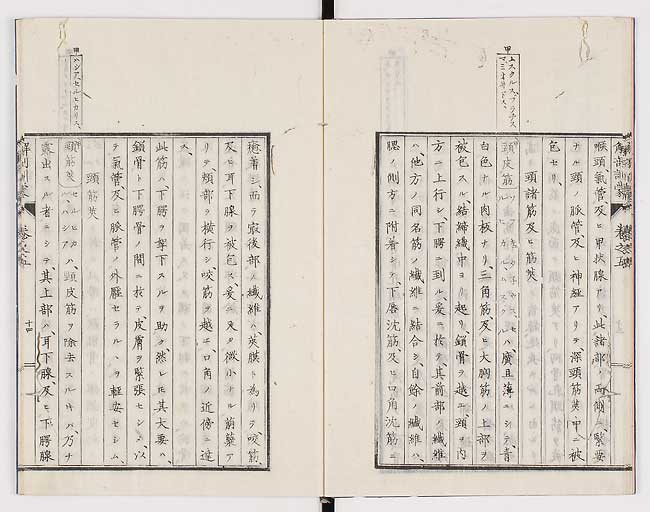 甲
喉頭、氣管及ヒ甲状腺アリ、此諸部ノ兩側ニ、緊要
ナル頸ノ脈管及ヒ神經アリテ深頸筋莢甲ニ被
包セリ、
頸諸筋及ヒ筋莢
頸皮筋 ハ廣且薄ニシテ、青
白色ナル肉板ナリ、三角筋及ヒ大胸筋ノ上部ヲ
被包スル結締織中ヨリ起リ、鎖骨ヲ越エ、頸ヲ内
方ニ上行シ、下腭ニ到ル、爰ニ於テ、其前部ノ纖維
ハ、他方ノ同名筋ノ纖維ニ結合シ、自餘ノ纖維ハ、
腮ノ側方ニ附着シテ、下唇沈筋及ヒ口角沈筋ニ
解剖訓蒙 卷之五
甲
ハシアセルヒカリス
癒着ス、而ラ最後部ノ纖維ハ、莢膜ト為リテ咬筋、
及ヒ耳下腺ヲ被包ス、爰ニ又タ微小ナル筋藥ア
リテ、頰部ヲ横行シ咬筋ヲ越エ、口角ノ近傍ニ達
ス、
此筋ハ、下腭ヲ牽下スルヲ助ク、然レ𪜈其大要ハ、
鎖骨ト下腭骨ノ間ニ於テ、皮膚ヲ緊張セシメ、以
テ氣管及ヒ脈管ノ外壓セラルヽヲ輕安セシム、
頸筋莢
頸筋莢 ハ、頸皮筋ヲ除去スルキハ、乃ナ
露出スル者ニシテ其上部ハ、耳下腺、及ヒ下腭腺
解剖訓蒙 卷之五 十四